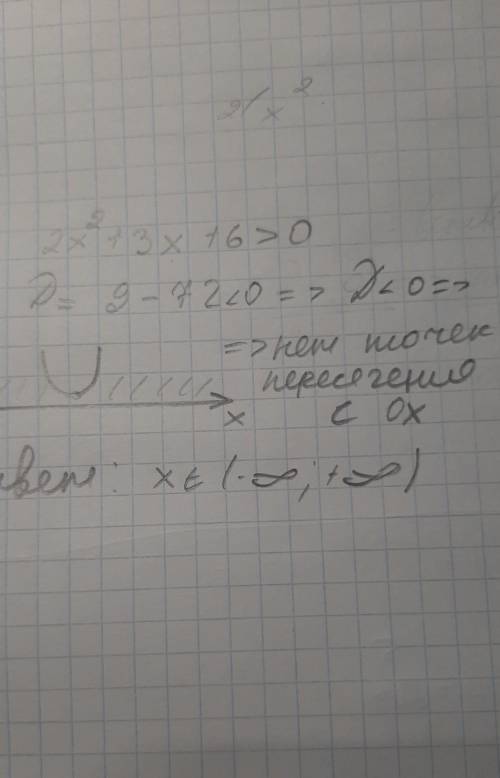 2x² + 3x + 6 > 0
D = 9 - 72 < 0 => D < 0 =>
=> нет точек
пересечения
x с OX
вет: x ∈ (-∞; +∞)